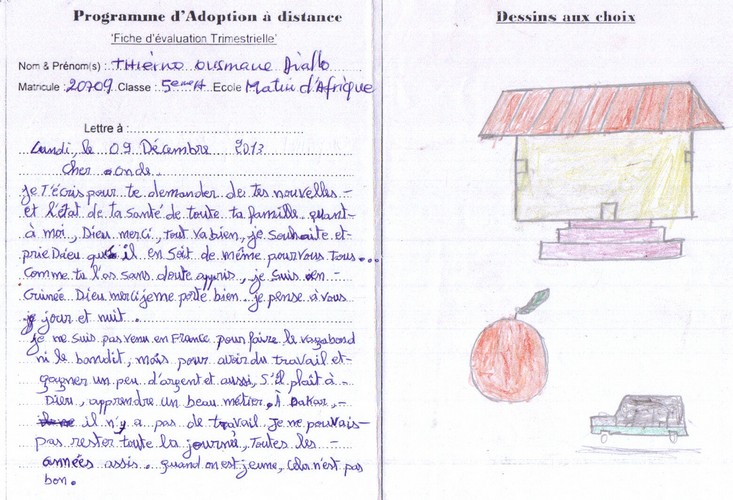 Programme d'Adoption à distance
'Fiche d'évaluation Trimestrielle'
Nom & Prénom(s) : THierno ousmane Diallo
Matricule : 20709 Classe : 5emeA Ecole Matin d'Afrique
Lettre à :
Lundi, le 09 Décembre 2013
Cher oncle
je T'écris pour te demander de tes nouvelles
et l'état de ta santé de toute ta famille quant
à moi, Dieu merci, tout va bien, je souhaite et
prie Dieu qu'il en soit de même pour vous Tous...
Comme tu l'as sans doute appris, je suis en
Guinée Dieu merci je me porte bien. je pense à vous
jour et nuit.
je ne suis pas venu en France pour faire le vagabond
ni le bandit, mais pour avoir du travail et
gagner un peu d'argent et aussi, s'il plaît à
Dieu, apprendre un beau métier. À Dakar,
il n'y a pas de travail je ne pouvais
pas rester toute la journée, Toutes les
années assis. quand on est jeune, Cela n'est pas
bon.
Dessins aux choix